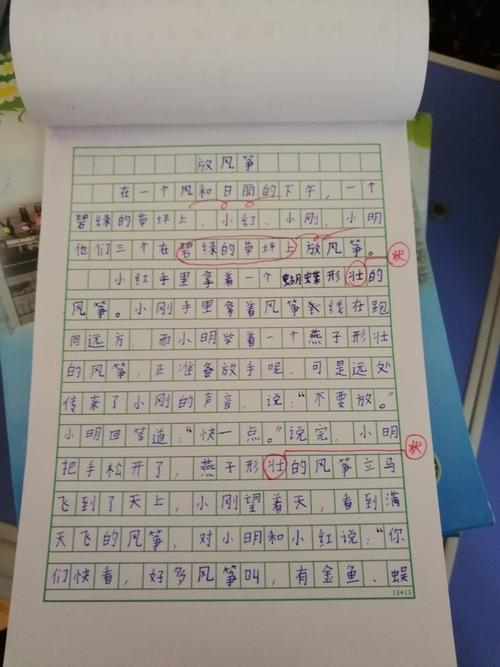 放风筝
在一个风和日丽的下午，一个
碧绿的草坪上，小红、小刚、小明
他们三个在碧绿的草坪上放风筝。
状
小红手里拿着一个蝴蝶形壮的
风筝。小刚手里拿着风筝线在跑
向远方，而小明举着一个燕子形壮
的风筝，正准备放手呢，可是远处
传来了小刚的声音，说：“不要放。”
小明回答道：“快一点。”说完，小明
状
把手松开了，燕子形壮的风筝立马
飞到了天上，小刚望着天，看到满
天飞的风筝，对小明和小红说：“你
们快看，好多风筝叫，有金鱼、蜈